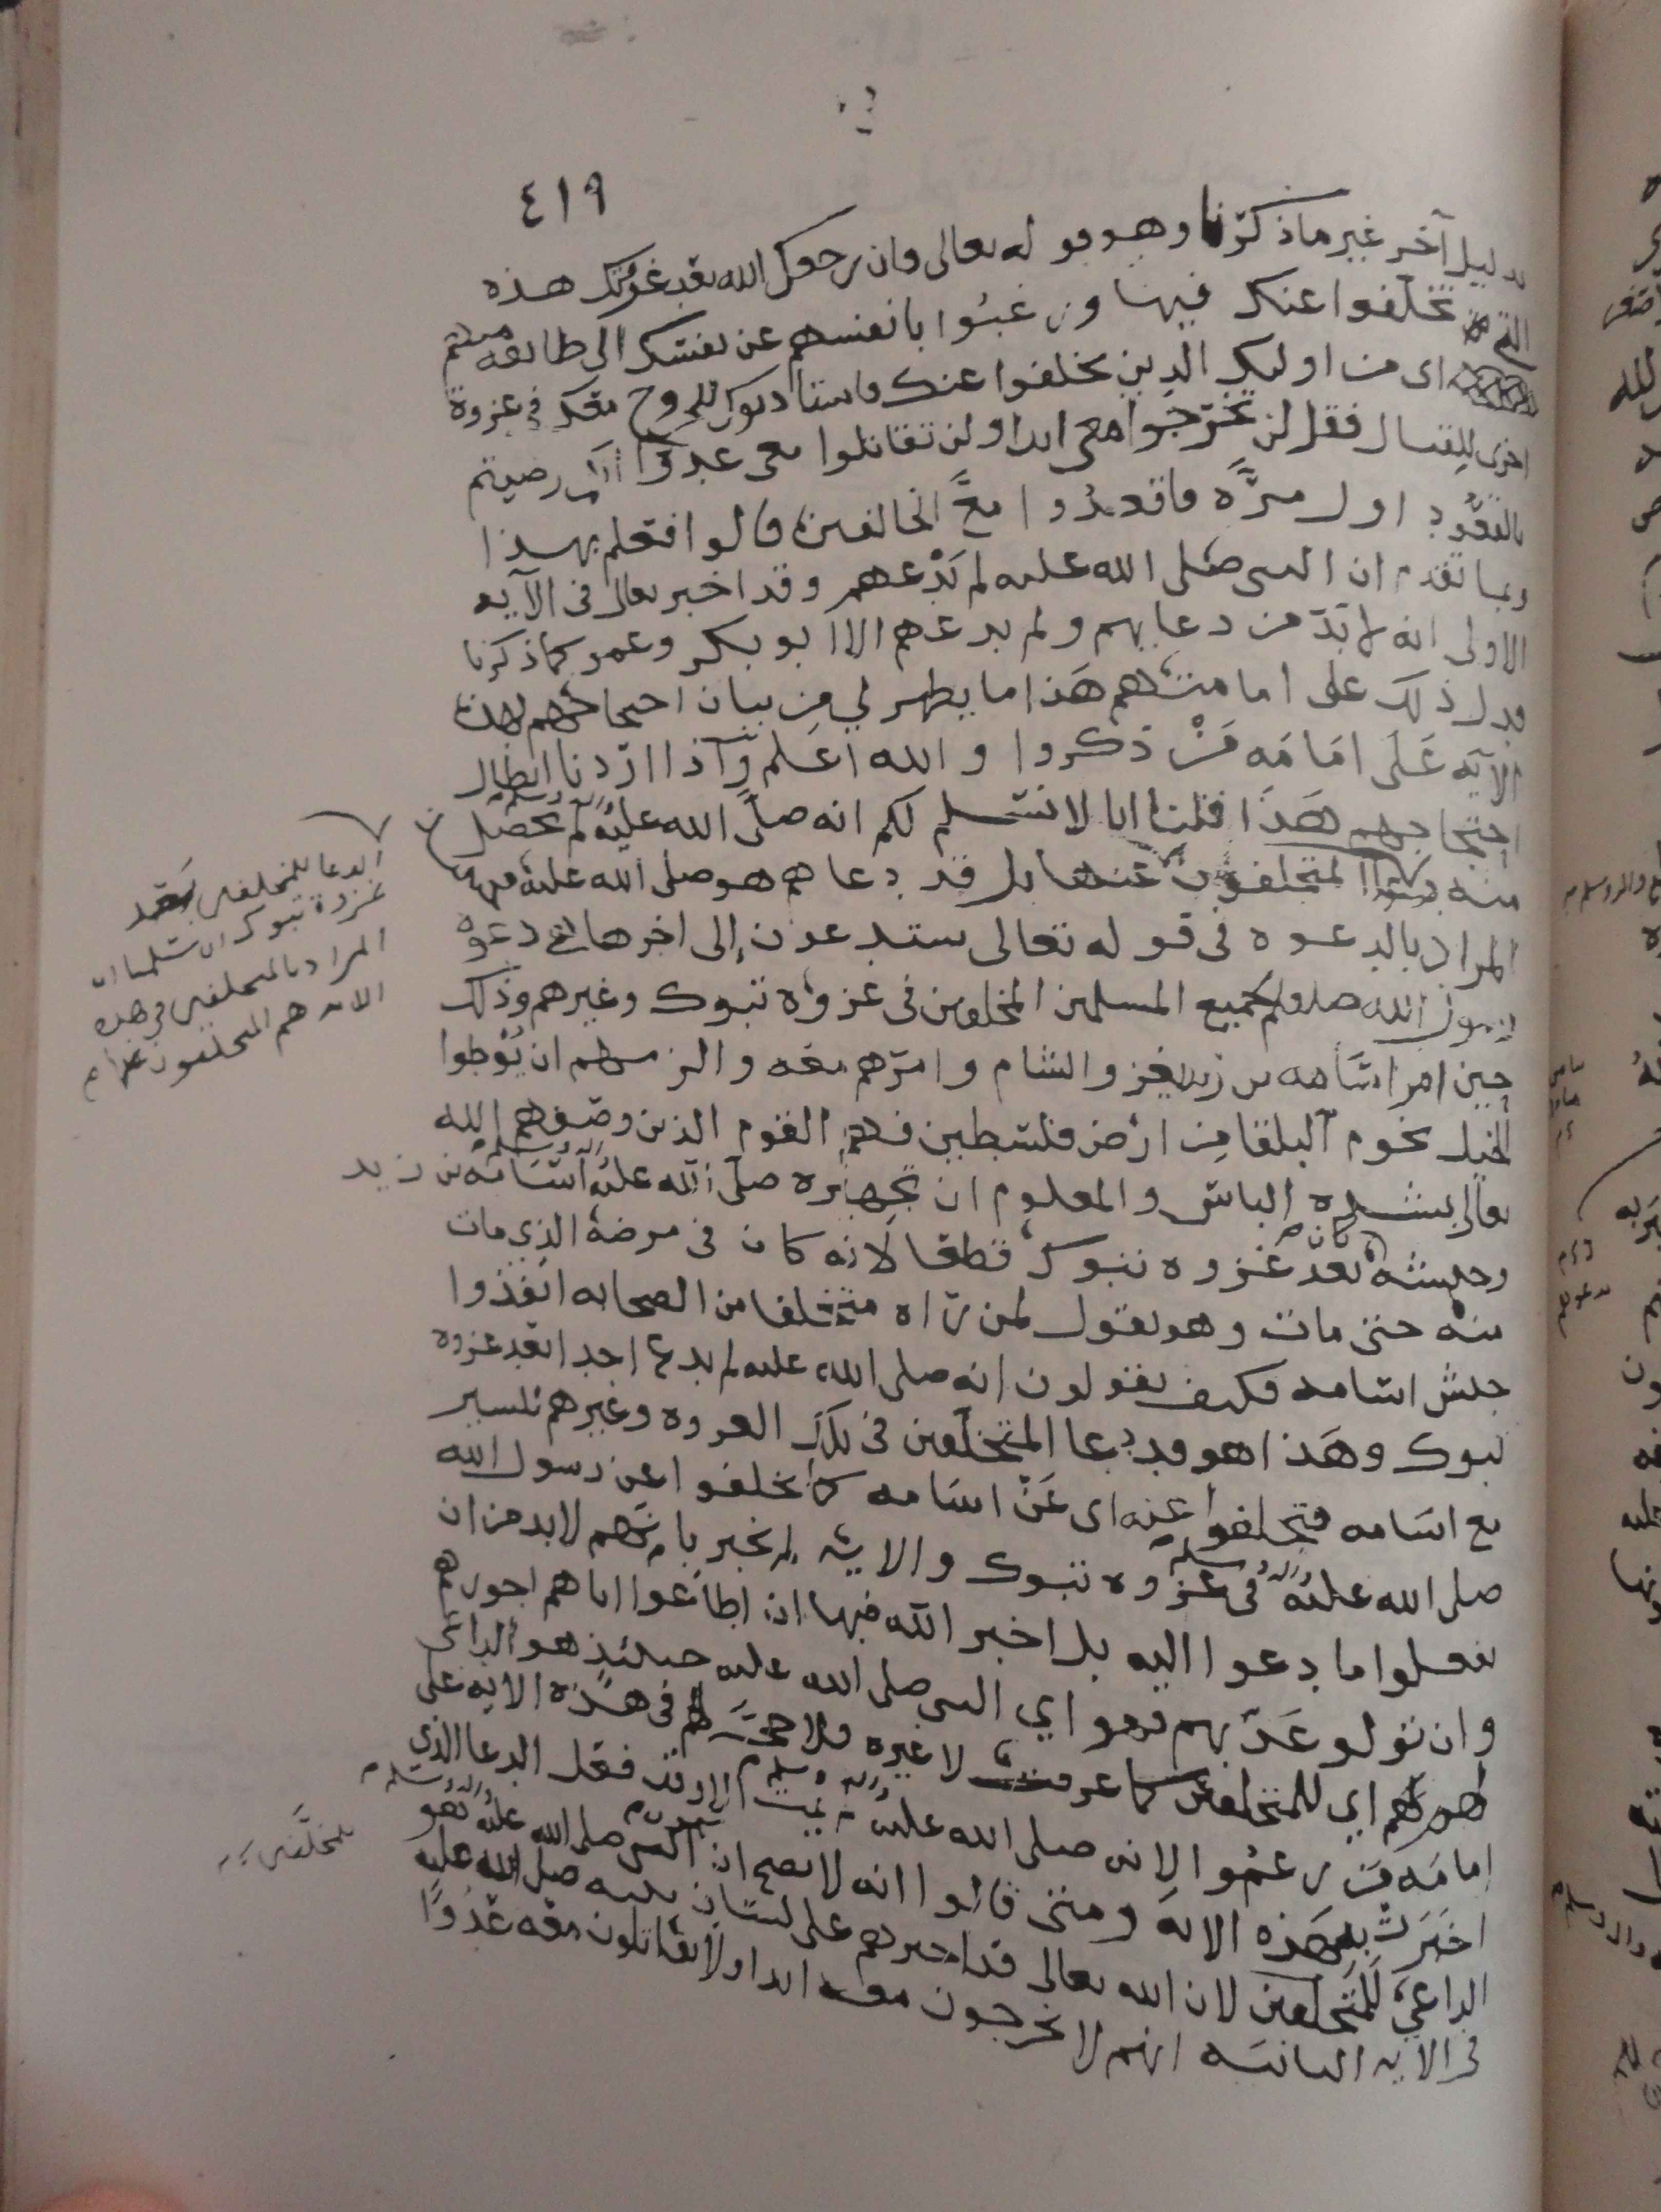 ٤١٩
بدليل آخر غير ما ذكرنا وهو قوله تعالى فان رجعك الله بعد غزوتك هذه
التي تخلفوا عنك فيها ورغبوا بانفسهم عن نفسك الى طائفه منهم
اى من اوليك الذين تخلفوا عنك فاستأذنوك للخروج معك في غزوة
اخرى للقتال فقل لن تخرجوا معي ابدا ولن تقاتلوا معي عدوا انكم رضيتم
بالقعود اول مرّه فاقعدوا مع الخالفين قالوا فتعلم بهذا
وبما تقدم ان النبي صلى الله عليه لم يدعهم وقد اخبر تعالى في الآيه
الاولى انه لا بدّ من دعايهم ولم يدعهم الا ابو بكر وعمر كما ذكرنا
فدل ذلك على امامتهم هذا ما يظهر لي من بيان احتجاجهم بهذه
الآيه على امامه من ذكروا والله اعلم وآذا اردنا ابطال
احتجاجهم هذا قلنا انا لا نسلم لكم انه صلى الله عليه وآله وسلم لم يحصل
منه المتخلفون عنها بل قد دعاهم هو صلى الله عليه
المراد بالدعوه في قوله تعالى ستدعون إلى اخرها دعوه
رسول الله صلعم لجميع المسلمين المخلفين في غزوه تبوك وغيرهم وذلك
حين امر اسامه بن زيد بغزو الشام وامرهم معه والزمهم ان يوطوا
الخيل تخوم آلبلقا من ارض فلسطين فهم القوم الذين وصفهم الله
تعالى بشده الباس والمعلوم ان تجهيزه صلى الله عليه وآله وسلم اسامه بن زيد
وجيشه كان بعد غزوه تبوك قطعا لانه كان في مرضه الذي مات
منه حتى مات وهو يقول لمن رآه متخلفا من الصحابه انفذوا
جيش اسامه فكيف يقولون انه صلى الله عليه لم يدع احدا بعد غزوه
تبوك وهذا هو قد دعا المتخلفين في تلك الغزوه وغيرهم للسير
مع اسامه فتخلفوا عنه اى عن اسامه كما تخلفوا عن رسول الله
صلى الله عليه وآله وسلم في غزوه تبوك والايه لم تخبر بانهم لابد من ان
يفعلوا ما دعوا اليه بل اخبر الله فيها ان اطاعوا اتاهم اجورهم
وان تولو عذبهم فهو اي النبي صلى الله عليه حينئذ هو الداعي
لهم اي للمتخلفين كما عرفت لا غيره فلا حجّة لهم في هذه الايه على
امامه من زعموا لانه صلى الله عليه وآله وسلم لم يمت الا وقد فعل الدعا الذي
اخبرت به هذه الايه ومتى قالوا انه لا يصح ان يكون النبي صلى الله عليه وآله وسلم هو
الداعي للمتخلفين لان الله تعالى قد اخبرهم على لسان نبيه صلى الله عليه
في الايه الثانيه انهم لا يخرجون معه ابدا ولا يقاتلون معه عدوًّا
الدعا للمتخلفين بعد
غزوة تبوك ان سلمنا ان
المراد بالمتخلفين في هذه
الايه هم المتخلفون عنها
للمخلَّفين